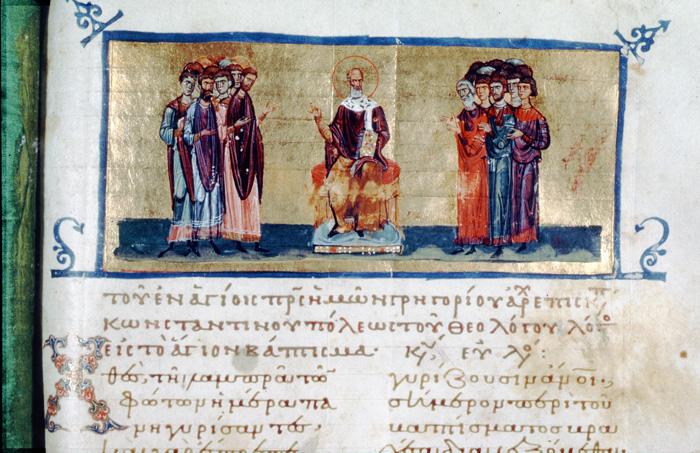 ΤΟΥ ΕΝ ΑΓΙΟΙΣ ΠΡΣ ΗΜΩΝ ΓΡΗΓΟΡΙΟΥ ΑΡΧΕΠΙΣΚΠ
ΚΩΝΣΤΑΝΤΙΝΟΥΠΟΛΕΩΣ ΤΟΥ ΘΕΟΛΟΓΟΥ ΛΟΓΟ
ΕΙΣ ΤΟ ΑΓΙΟΝ ΒΑΠΤΙΣΜΑ· Κ̅Ε̅ ΕΥΛΟ:
Χθὲς τῇ λαμπρᾷ τῶν
φώτων ἡμέρα πα
νηγυρίσαντες·
γυρίζουσιν ἄνοι,
σήμερον περὶ τοῦ
βαπτίσματος βρα
χέα διαλεξώμεθα